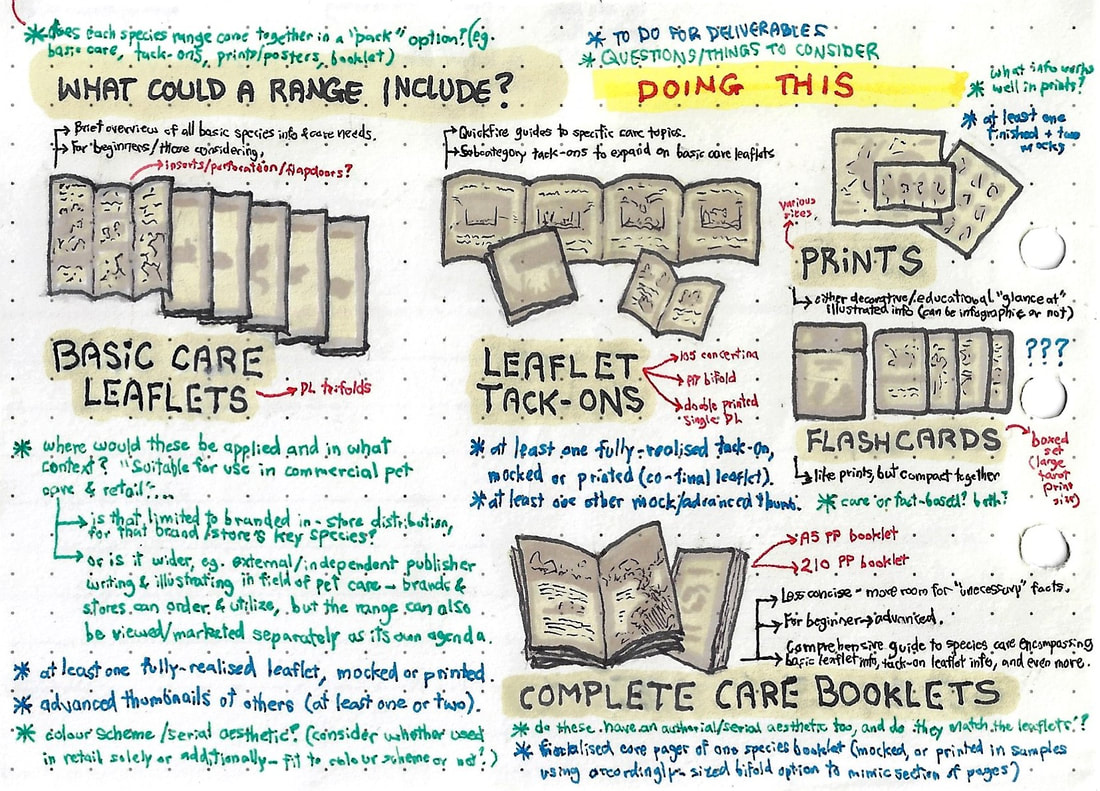 * does each species range come together in a "pack" option? (eg.
basic care, tack-ons, prints/posters, booklet)
* TO DO FOR DELIVERABLES
* QUESTIONS/THINGS TO CONSIDER
WHAT COULD A RANGE INCLUDE?
DOING THIS
Brief overview of all basic species info & care needs.
For beginners/those considering.
inserts/perforation/flapdoors?
BASIC CARE
LEAFLETS
DL trifolds
* where would these be applied and in what
context? "Suitable for use in commercial pet
care & retail"...
is that limited to branded in-store distribution,
for that brand/store's key species?
or is it wider, eg. external/independent publisher
writing & illustrating in field of pet care - brands &
stores can order & utilize, but the range can also
be viewed/marketed separately as its own agenda.
* at least one fully-realised leaflet, mocked or printed
* advanced thumbnails of others (at least one or two).
* colour scheme/serial aesthetic? (consider whether used
in retail solely or additionally - fit to colour scheme or not?)
Quickfire guides to specific care topics.
Subcategory tack-ons to expand on basic care leaflets
LEAFLET
TACK-ONS
105 concertina
bifold
double printed
single DL
* at least one fully-realised tack-on,
mocked or printed (co-final leaflet).
* at least one other mock/advanced thumb.
what info works
well in prints?
* at least one
finished + two
mocks
various
sizes.
PRINTS
either decorative/educational "glance at"
illustrated info (can be infographic or not)
???
FLASHCARDS
boxed
set
(large
tarot
print
size)
like prints, but compact together
* care or fact-based? both?
A5 PP booklet
210 PP booklet
Less concise - more room for "unecessary" facts.
For beginner → advanced.
Comprehensive guide to species care encompassing
basic leaflet info, tack-on leaflet info, and even more.
COMPLETE CARE BOOKLETS
* do these have an authorial/serial aesthetic too, and do they match the leaflets?
* care pages of one species booklet (mocked, or printed in samples
using accordingly-sized bifold option to mimic section of pages)